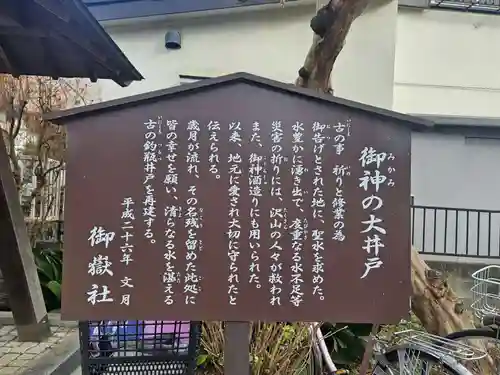 御神の大井戸
古の事 祈りと修業の為
御告げとされた地に、聖水を求めた。
水豊かに湧き出で、度重なる水不足等
災害の折りには、沢山の人々が救われ
また、御神酒造りにも用いられた。
以来、地元に愛され大切に守られたと
伝えられる。
歳月が流れ、その名残を留めた此処に
皆の幸せを願い、清らなる水を湛える
古の釣瓶井戸を再建する。
平成二十六年 文月
御嶽社